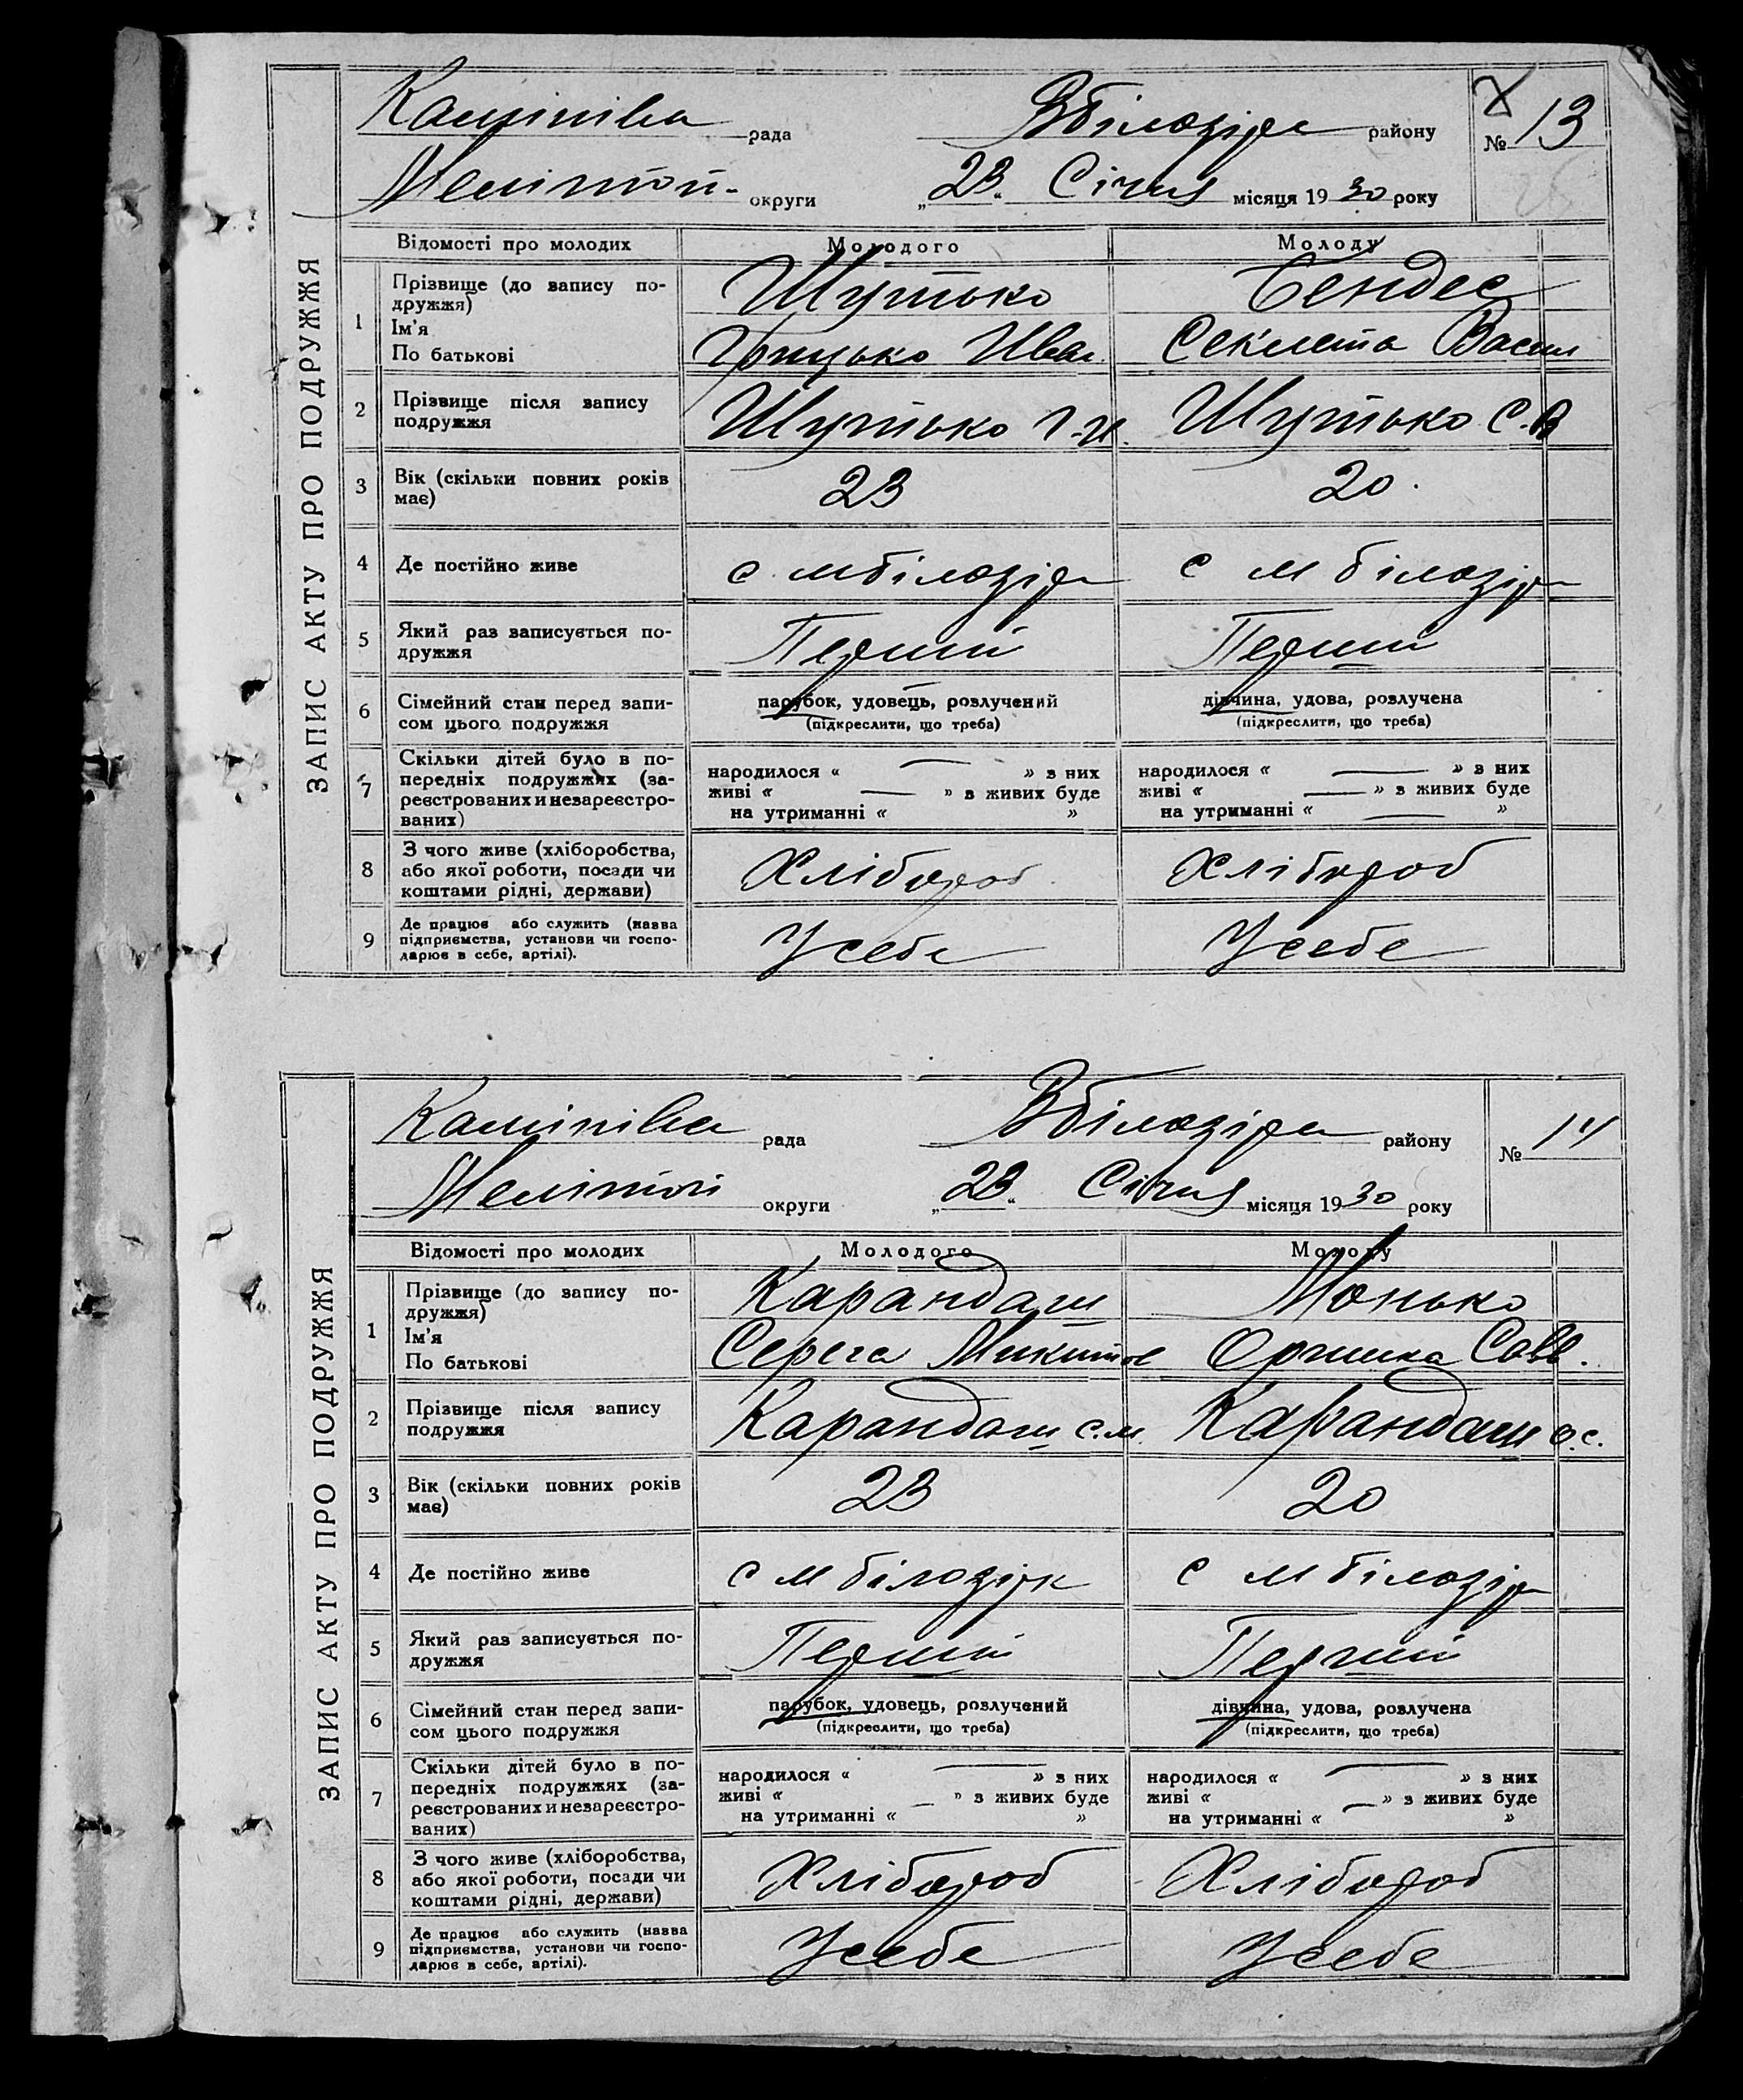 ЗАПИС АКТУ ПРО ПОДРУЖЖЯ
рада Вбілозірк району № 13
Мелітоп- округи „23“ Січня місяця 1930 року
Відомості про молодих Молодого Молоду
1 Прізвище (до запису по-
дружжя) Шутько Бендес
Ім'я
По батькові Грицько Иван. Секлета Васил
2 Прізвище після запису
подружжя Шутько Г.И. Шутько С.В
3 Вік (скільки повних років
має) 23 20.
4 Де постійно живе с. м білозірк с м білозірк
5 Який раз записується по-
дружжя Перший Перший
6 Сімейний стан перед запи-
сом цього подружжя парубок, удовець, розлучений дівчина, удова, розлучена
(підкреслити, що треба) (підкреслити, що треба)
7 Скільки дітей було в по-
передніх подружжях (за-
реєстрованих и незареєстро-
ваних)
народилося « — » з них народилося « — » з них
живі « — » з живих буде живі « — » з живих буде
на утриманні « » на утриманні « — »
8 З чого живе (хліборобства,
або якої роботи, посади чи
коштами рідні, держави) Хлібороб Хлібороб
9 Де працює або служить (назва
підприємства, установи чи госпо-
дарює в себе, артілі). Усебе Усебе
ЗАПИС АКТУ ПРО ПОДРУЖЖЯ
рада Вбілозірк району № 14
Мелітоп округи „23“ Січня місяця 1930 року
Відомості про молодих Молодого Молоду
1 Прізвище (до запису по-
дружжя) Карандаш Монько
Ім'я
По батькові Серега Микитов Оришка Савв.
2 Прізвище після запису
подружжя Карандаш С.М. Карандаш О.С.
3 Вік (скільки повних років
має) 23 20
4 Де постійно живе с м білозірк с м білозірк
5 Який раз записується по-
дружжя Перший Перший
6 Сімейний стан перед запи-
сом цього подружжя парубок, удовець, розлучений дівчина, удова, розлучена
(підкреслити, що треба) (підкреслити, що треба)
7 Скільки дітей було в по-
передніх подружжях (за-
реєстрованих и незареєстро-
ваних)
народилося « — » з них народилося « — » з них
живі « — » з живих буде живі « — » з живих буде
на утриманні « » на утриманні « »
8 З чого живе (хліборобства,
або якої роботи, посади чи
коштами рідні, держави) Хлібороб Хлібороб
9 Де працює або служить (назва
підприємства, установи чи госпо-
дарює в себе, артілі). Усебе Усебе